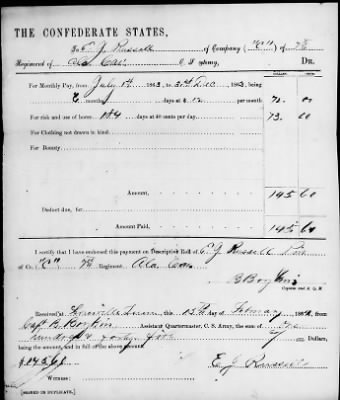 THE CONFEDERATE STATES,
To E. J. Russell of Company "E" of 7th
Regiment of Ala Cav. C. S. Army, DR.
DOLLARS CENTS
For Monthly Pay, from July 1st 1863, to 31st Dec 1863, being
6 months days at $ 12 per month 72. 00
For risk and use of horse 184 days at 40 cents per day 73. 60
For Clothing not drawn in kind
For Bounty
Amount, 145 60
Deduct due, for
Amount Paid, 145 60
I certify that I have endorsed this payment on Descriptive Roll of E. J. Russell
of Co. "E" 7th Regiment, Ala Cav.
Captain and A. Q. M.
Received at Tenn this 13th day of 1864, from
Capt B. Assistant Quartermaster, C. S. Army, the sum of One
hundred & forty five 60/100 Dollars,
being the amount, and in full of the above account.
$ 145 60 E. J. Russell
Witness:
[SIGNED IN DUPLICATE.]